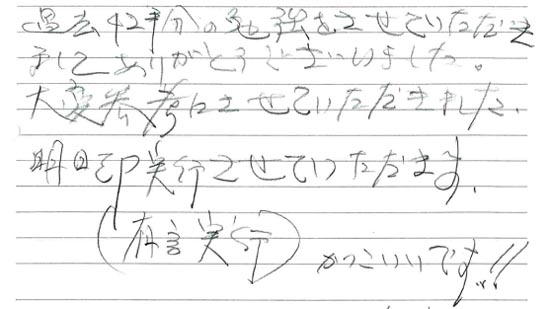 過去42年分の勉強をさせていただき
ましてありがとうございいました。
大変参考にさせていただきました。
明日即実行させていただます。
(有言実行) かっこいいです!!